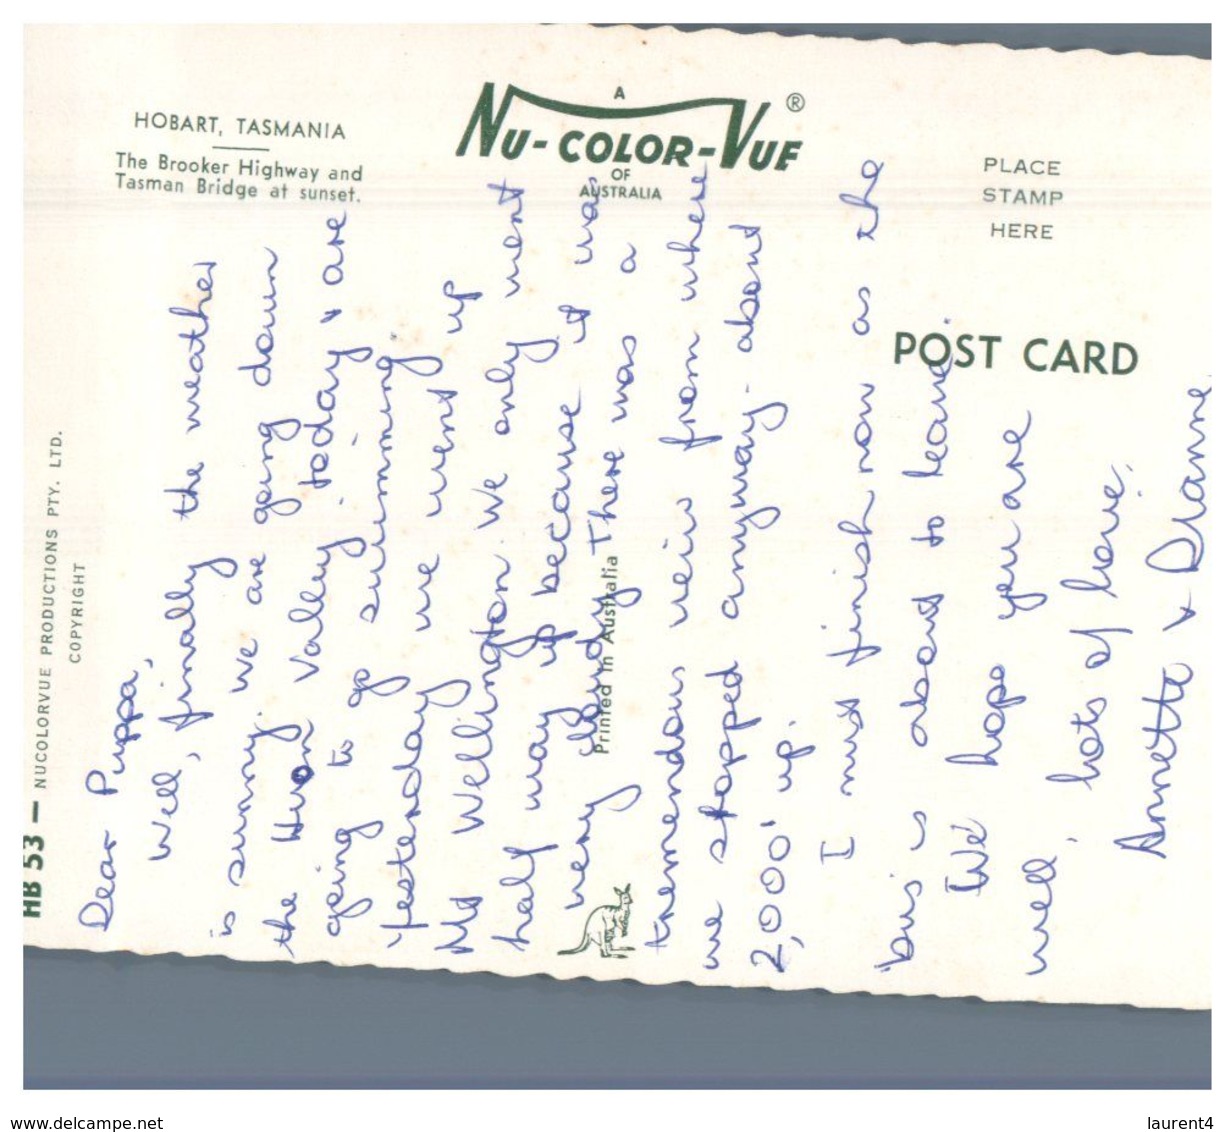 HOBART, TASMANIA
The Brooker Highway and
Tasman Bridge at sunset.
A
NU-COLOR-VUE ®
OF
AUSTRALIA
PLACE
STAMP
HERE
POST CARD
HB 53 — NUCOLORVUE PRODUCTIONS PTY. LTD.
COPYRIGHT
Printed in Australia
Dear Puppa,
Well, finally the weather
is sunny. We are going down
the Huon Valley today & are
going to go swimming.
Yesterday we went up
Mt Wellington. We only went
half way up because it was
very cloudy. There was a
tremendous veiw from where
we stopped anyway - about
2,000' up.
I must finish now as the
bus is about to leave.
We hope you are
well,
Lots of love,
Annette & Dianne
delcampe.net
laurent4